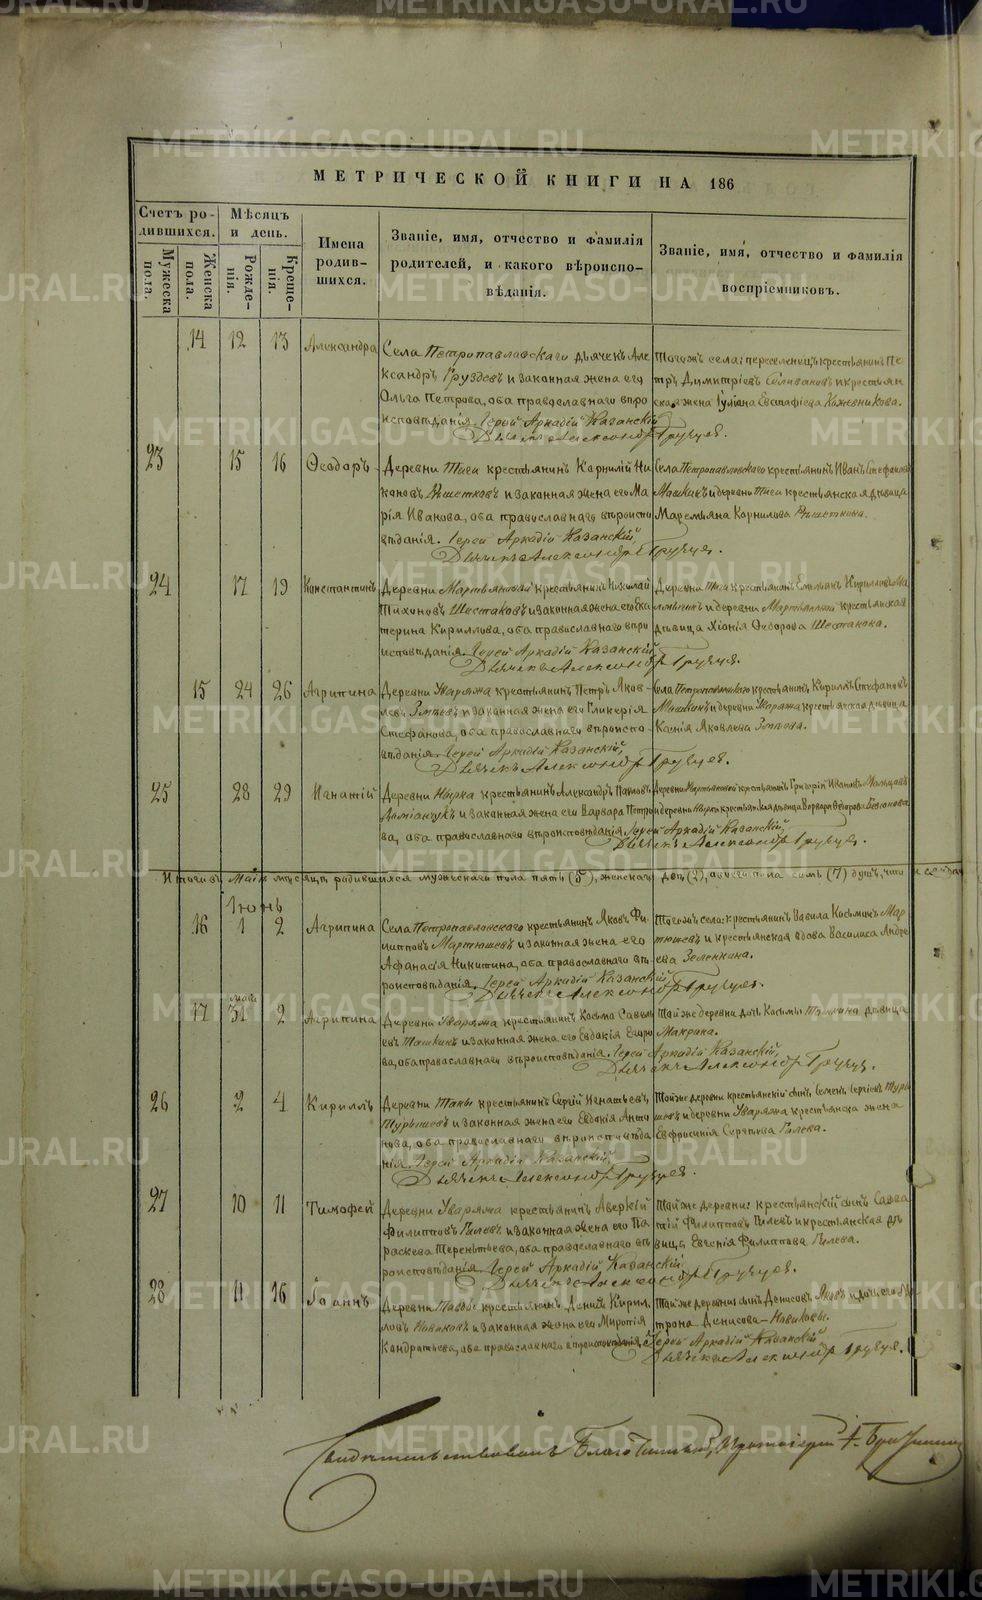 METRIKI.GASO-URAL.RU
МЕТРИЧЕСКОЙ КНИГИ НА 186
Счетъ ро-
дившихся.
Мужеска
пола.
Женска
пола.
Мѣсяцъ
и день.
Рожде-
нія.
Креще-
нія.
Имена
родив-
шихся.
Званіе, имя, отчество и фамилія
родителей, и какого вѣроиспо-
вѣданія.
Званіе, имя, отчество и фамилія
воспріемниковъ.
14 12 13 Александра
Села Петропавловскаго дьячекъ Але
ксандръ Груздевъ и законная жена его
Ольга Петрова, оба православнаго вѣро
исповѣданія. Іерей Аркадій Казанскій
Дьячекъ Александръ Груздев.
Тогожъ села: переселенецъ крестьянинъ Пе
тръ Димитріевъ Селивановъ и крестьян
ская жена Іуліана Евстафіева Кожевникова.
23 15 16 Ѳеодоръ
Деревни Тиси крестьянинъ Корнилій Ни
кановъ Рѣшетковъ и законная жена его Ма
рія Иванова, оба православнаго вѣроиспо
вѣданія. Іерей Аркадій Казанскій,
Дьячекъ Александръ Груздев.
Села Петропавловскаго крестьянинъ Иванъ Стефановъ
и деревни Тиси крестьянская дѣвица
Маремьяна Корнилова
24 17 19 Константинъ
Деревни Мартьяновой крестьянинъ Николай
Тихоновъ Шестаковъ и законная жена его Ека
терина Кириллова, оба православнаго вѣро
исповѣданія. Іерей Аркадій Казанскій,
Дьячекъ Александръ Груздев.
Деревни Тиси крестьянинъ Емельянъ Кирилловъ
и деревни Мартьяновой крестьянская
дѣвица Хіонія Ѳеодорова Шестакова.
15 24 26 Агрипина
Деревни Уваряжа крестьянинъ Петръ Яков
левъ Зотевъ и законная жена его Гликерія
Стефанова, оба православнаго вѣроиспо
вѣданія. Іерей Аркадій Казанскій,
Дьячекъ Александръ Груздев.
Села Петропавловскаго крестьянинъ Кириллъ Стефановъ
и деревни Уваряжа крестьянская дѣвица
Ксенія Яковлева
25 28 29 Игнатій
Деревни Нырка крестьянинъ Александръ Павловъ
и законная жена его Варвара Петро
ва, оба православнаго вѣроисповѣданія. Іерей Аркадій Казанскій,
Дьячекъ Александръ Груздев.
Деревни Мартьяновой крестьянинъ Григорій Ивановъ
и деревни Нырки крестьянская дѣвица Варвара Ѳедорова
Итого въ Маѣ мѣсяцѣ родившихся мужескаго пола пять (5), женскаго два (2), обоего пола семь (7) душъ, что и
Іюнь
16 1 2 Агрипина
Села Петропавловскаго крестьянинъ Яковъ Фи
липповъ Мартюшевъ и законная жена его
Афанасія Никитина, оба православнаго вѣ
роисповѣданія. Іерей Аркадій Казанскій,
Дьячекъ Александръ Груздев.
Тогожъ села: крестьянинъ Вавила Космин Мар
тюшевъ и крестьянская вдова Василиса Андре
ева Зеленкина.
Маія
17 31 2 Агрипина
Деревни Уваряжа крестьянинъ Косьма Савель
евъ Ташкинъ и законная жена его Евдокія Егоро
ва, оба православнаго вѣроисповѣданія. Іерей Аркадій Казанскій,
Дьячекъ Александръ Груздев.
Той же деревни дочь Касьмы Ташкина дѣвица
Макрина.
26 2 4 Кириллъ
Деревни Талы крестьянинъ Сергій Игнатьевъ
Турышевъ и законная жена его Евдокія Анто
нова, оба православнаго вѣроисповѣда
нія. Іерей Аркадій Казанскій,
Дьячекъ Александръ Груздев.
Той же деревни крестьянскій сынъ Семенъ Сергіевъ Туры
шевъ и деревни Уваряжа крестьянска жена
Евфросинія Сергѣева Гилева.
27 10 11 Тимофей
Деревни Уваряжа крестьянинъ Аверкій
Филипповъ Гилевъ и законная жена его Па
раскева Терентьева, оба православнаго вѣ
роисповѣданія. Іерей Аркадій Казанскій
Дьячекъ Александръ Груздев.
Той же деревни: крестьянскій сынъ Савва
тій Филипповъ Гилевъ и крестьянская дѣ
вица Евгенія Филиппова Гилева.
28 11 16 Іоаннъ
Деревни крестьянинъ Денисъ Кирил
ловъ Новиковъ и законная жена его Миропія
Кондратьева, оба православнаго вѣроисповѣданія, Іерей Аркадій Казанскій
Дьячекъ Александръ Груздев.
Той же деревни сынъ Денисовъ Яковъ и дочь его
Денисова Новиковы.
Свидѣтельствовалъ Благочинный, Протоіерей